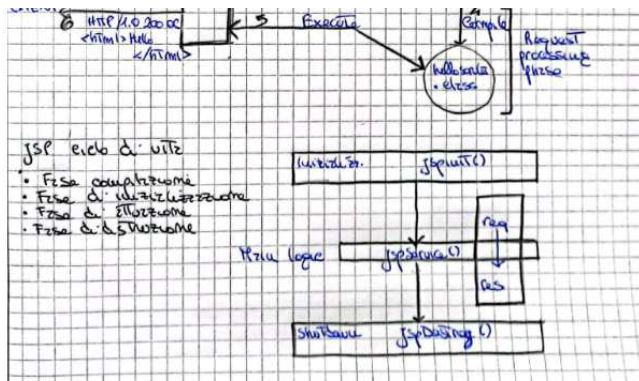 6 HTTP/1.0 200 OK
<html>Hello
</html>
5
Execute
Compile
helloservlet
.class
Request
processing
phase
JSP ciclo di vita
• Fase compilazione
• Fase di inizializzazione
• Fase di attuazione
• Fase di distruzione
inizializ. jspinit()
Main logic jspService()
req
res
ShutDown jspDestroy()